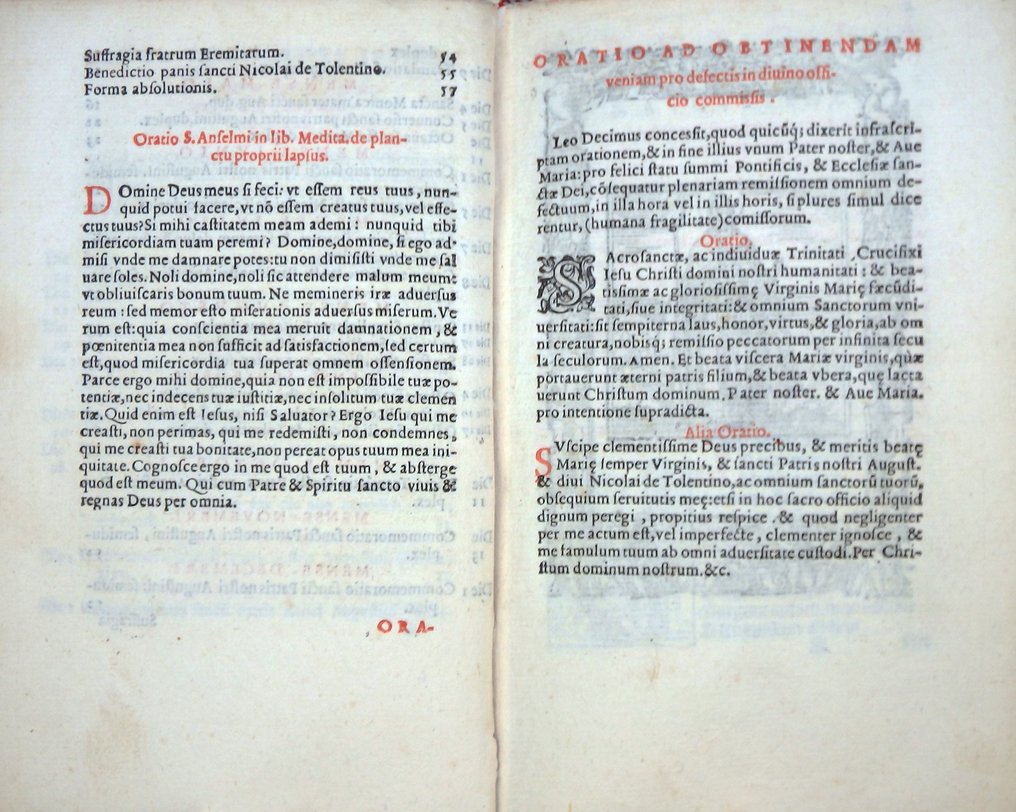 Suffragia fratrum Eremitarum. 54
Benedictio panis sancti Nicolai de Tolentino. 55
Forma absolutionis. 57
Oratio S. Anselmi in lib. Medita. de plan-
ctu proprii lapsus.
DOmine Deus meus si feci: vt essem reus tuus, nun-
quid potui facere, vt nõ essem creatus tuus, vel effe-
ctus tuus? Si mihi castitatem meam ademi: nunquid tibi
misericordiam tuam peremi? Domine, domine, si ego ad-
misi vnde me damnare potes: tu non dimisisti vnde me sal
uare soles. Noli domine, noli sic attendere malum meum:
vt obliuiscaris bonum tuum. Ne memineris iræ aduersus
reum: sed memor esto miserationis aduersus miserum. Ve
rum est: quia conscientia mea meruit damnationem, &
pœnitentia mea non sufficit ad satisfactionem, sed certum
est, quod misericordia tua superat omnem offensionem.
Parce ergo mihi domine, quia non est impossibile tuæ po-
tentiæ, nec indecens tuæ iustitiæ, nec insolitum tuæ clemen
tiæ. Quid enim est Iesus, nisi Saluator? Ergo Iesu qui me
creasti, non perimas, qui me redemisti, non condemnes,
qui me creasti tua bonitate, non pereat opus tuum mea ini-
quitate. Cognosce ergo in me quod est tuum, & absterge
quod est meum. Qui cum Patre & Spiritu sancto viuis &
regnas Deus per omnia.
ORA-
ORATIO AD OBTINENDAM
veniam pro defectis in diuino offi-
cio commissis.
Leo Decimus concessit, quod quicũq; dixerit infrascri-
ptam orationem, & in fine illius vnum Pater noster, & Aue
Maria: pro felici statu summi Pontificis, & Ecclesiæ san-
ctæ Dei, cõsequatur plenariam remissionem omnium de-
fectuum, in illa hora vel in illis horis, si plures simul dice
rentur, (humana fragilitate) comissorum.
Oratio.
SAcrosanctæ, ac indiuiduæ Trinitati, Crucifixi
Iesu Christi domini nostri humanitati: & bea-
tissimæ ac gloriosissimę Virginis Marię fæcúdi-
tati, siue integritati: & omnium Sanctorum vni-
uersitati: sit sempiterna laus, honor, virtus, & gloria, ab om
ni creatura, nobisq; remissio peccatorum per infinita secu
la seculorum. Amen. Et beata viscera Mariæ virginis, quæ
portauerunt æterni patris filium, & beata vbera, quę lacta
uerunt Christum dominum. Pater noster. & Aue Maria.
pro intentione supradicta.
Alia Oratio.
SVscipe clementissime Deus precibus, & meritis beatę
Marię semper Virginis, & sancti Patris nostri August.
& diui Nicolai de Tolentino, ac omnium sanctorũ tuorũ,
obsequium seruitutis meę: etsi in hoc sacro officio aliquid
dignum peregi, propitius respice, & quod negligenter
per me actum est, vel imperfecte, clementer ignosce, &
me famulum tuum ab omni aduersitate custodi. Per Chri-
stum dominum nostrum. &c.